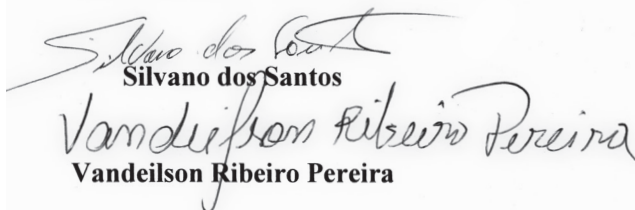 Silvano dos Sant
Silvano dos Santos
Vandeilson Ribeiro Pereira
Vandeilson Ribeiro Pereira